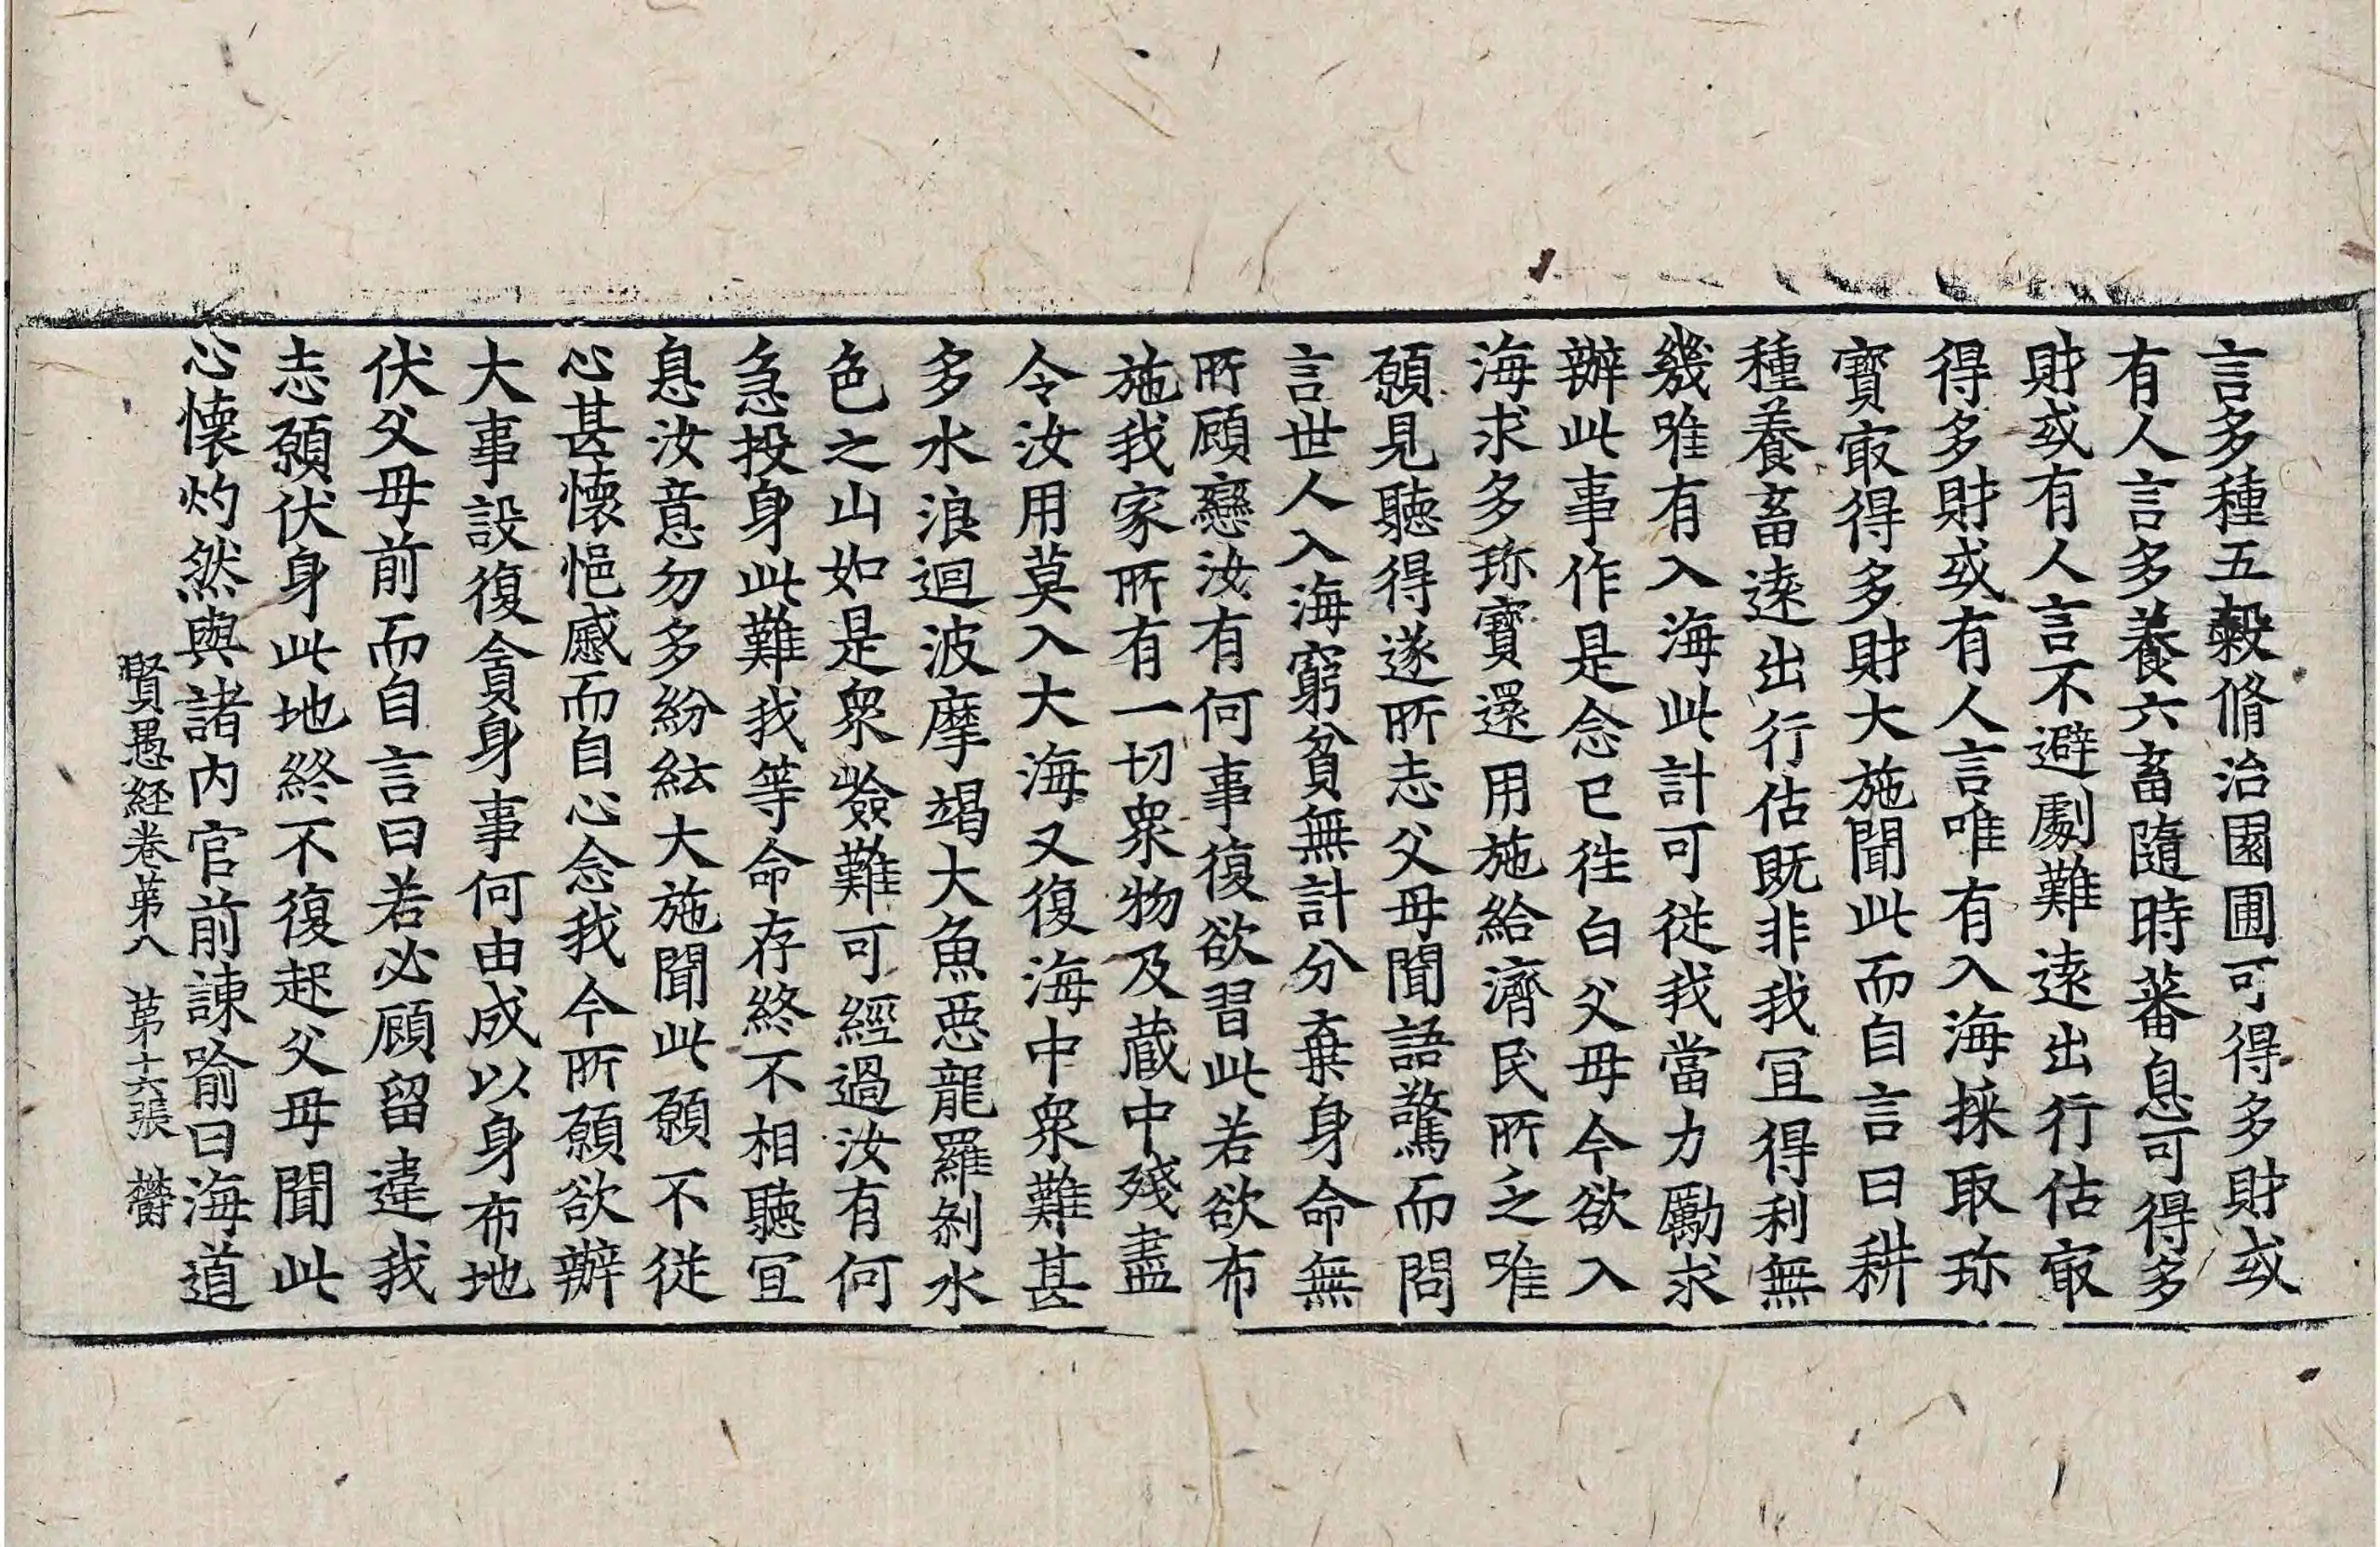 言多種五穀脩治園圃可得多財或
有人言多養六畜隨時蕃息可得多
財或有人言不避劇難遠出行估㝡
得多財或有人言唯有入海採取珎
寶㝡得多財大施聞此而自言曰耕
種養畜遠出行估既非我冝得利無
幾唯有入海此計可從我當力勵求
辦此事作是念已往白父母今欲入
海求多珎寶還用施給濟民所乏唯
願見聽得遂所志父母聞語驚而問
言世人入海窮貧無計分棄身命無
所顧戀汝有何事復欲習此若欲布
施我家所有一切衆物及藏中殘盡
令汝用莫入大海又復海中衆難甚
多水浪迴波摩竭大魚惡龍羅剎水
色之山如是衆嶮難可經過汝有何
急投身此難我等命存終不相聽冝
息汝意勿多紛紜大施聞此願不從
心甚懷悒慼而自心念我今所願欲辦
大事設復貪身事何由成以身布地
伏父母前而自言曰若必顧留違我
志願伏身此地終不復起父母聞此
心懷灼然與諸內官前諫喻曰海道
賢愚経卷第八 第十六張 欝